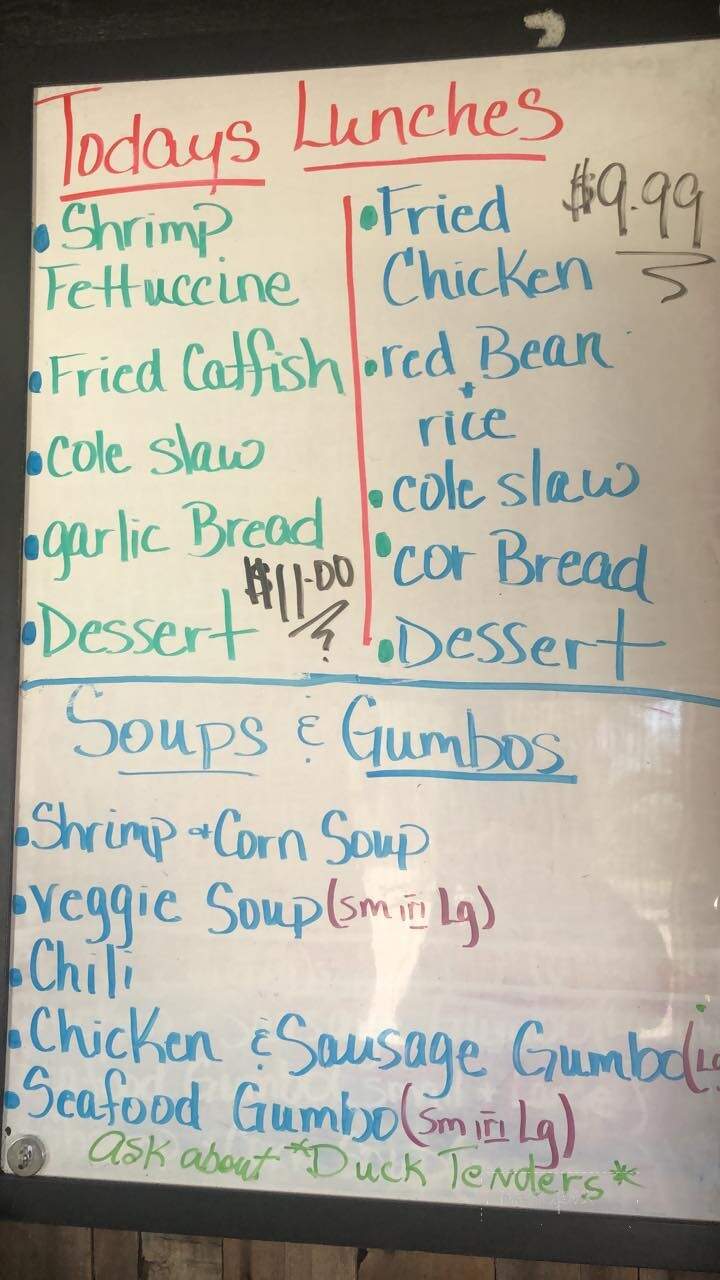 Todays Lunches
• Shrimp
Fettuccine
• Fried Catfish
• Cole slaw
• garlic Bread
$11.00
• Dessert
• Fried
Chicken
$9.99
• red Bean
+
rice
• cole slaw
• cor Bread
• Dessert
Soups & Gumbos
• Shrimp + Corn Soup
• Veggie Soup (sm Lg)
• Chili
• Chicken & Sausage Gumbo (L
• Seafood Gumbo (sm Lg)
Ask about *Duck Tenders*